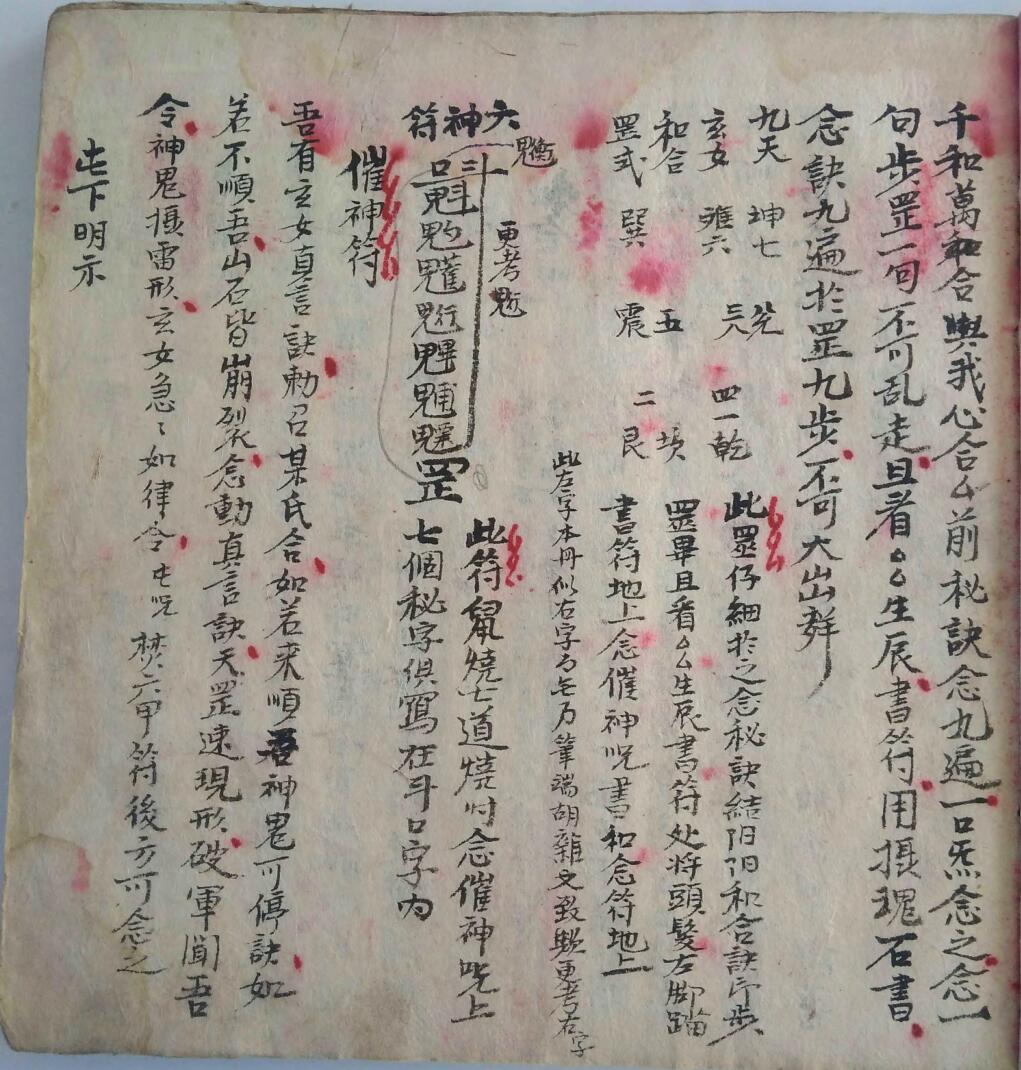 千和萬和合與我心合厶前秘訣念九遍一口炁念之念一
句步罡一句不可乱走且看厶厶生辰書符用摄魂石書
念訣九遍於罡九步不可大山群
九天 坤七 兑 乾
玄女 離六 三八 四一
和合 五 坎
罡式 巽 震 二 艮
此罡仔細於之念秘訣結阴阳和合訣印步
罡畢且看厶厶生辰書符处將頭髮左脚踏
書符地上念催神咒書和念符地上
此左字本冊似右字 筆端胡雜文致 更考右字
更考魁
六神符
斗口魁 罡
此符 燒七道燒时念催神咒上
七個秘字俱寫在斗口字内
催神符
吾有玄女真言訣勅召某氏合如若来順吾神鬼可停訣如
若不順吾山石皆崩裂念動真言訣天罡速現形破軍聞吾
令神鬼摄雷形玄女急〻如律令 咒 焚六甲符後方可念之
下明示